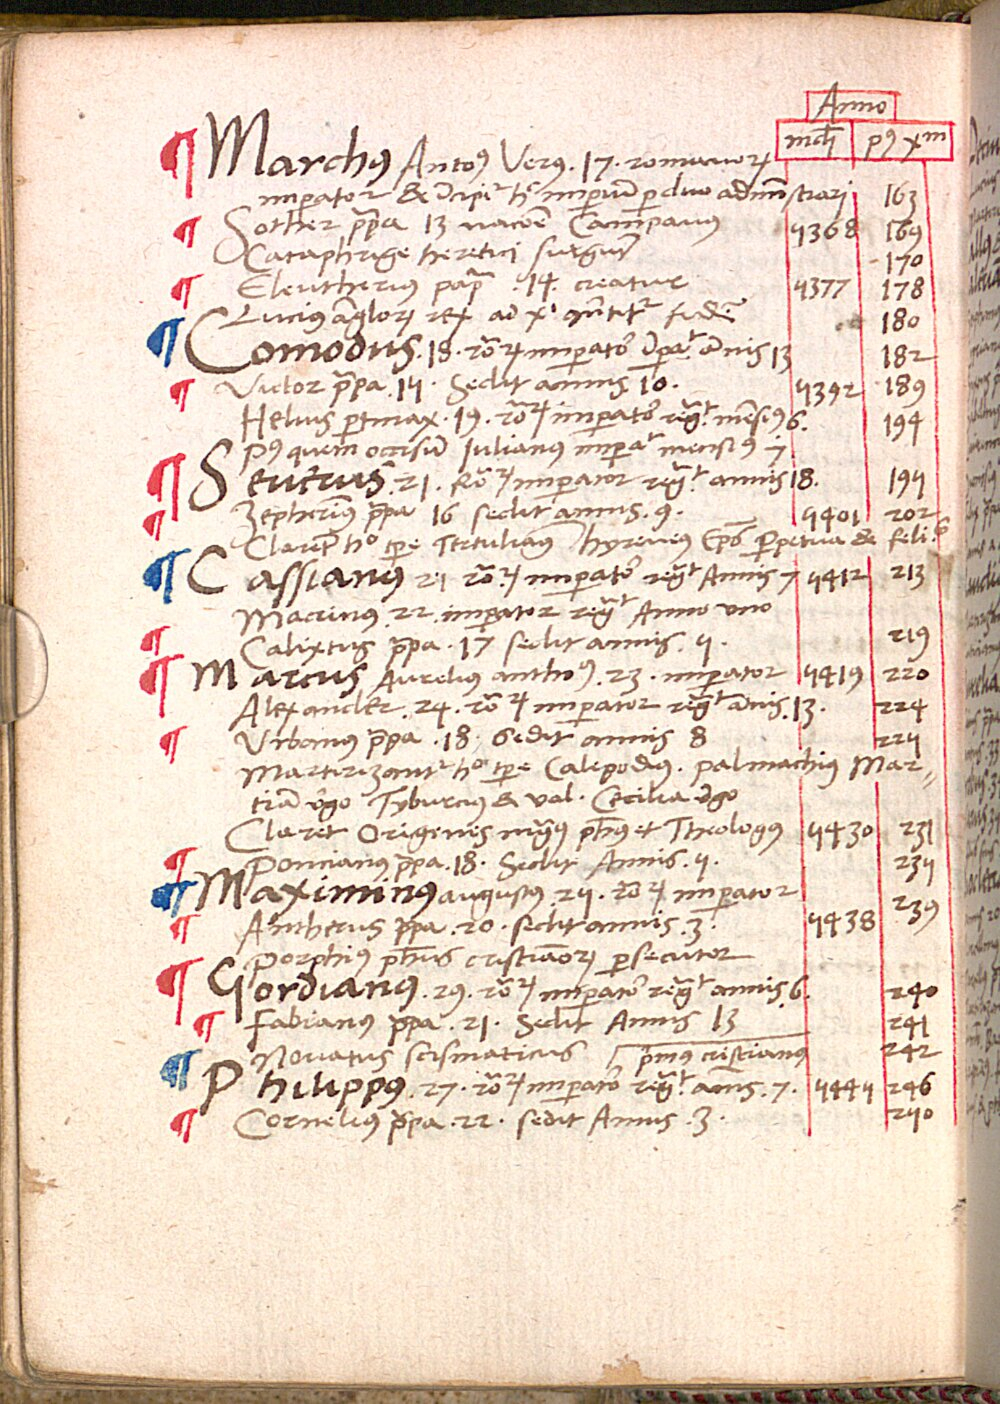 Anno
mdi | pꝰ xm
¶ Marchꝰ Antoꝰ Verꝰ . 17 . romanorꝝ
imperator & īcipit hoc imperiū p duo admīstrarj 163
¶ Sother pp̄a 13 nacōe Campanus 5368 169
Cataphrige heretici surgūt 170
¶ Eleutherius pap̄a . 14 . creatur 5377 178
Lucius āglorꝝ rex ad xi 180
¶ Comodus . 18 . rōꝝ imperator īpat annis 13 182
¶ Victor pp̄a . 15 . Sedit annis 10 . 5392 189
Helius ptinax . 19 . rōꝝ imperator regt mēsibꝰ 6 . 194
Pꝰ quem occisū Iulianus imperat mensibꝰ 7
¶ Seuerus . 21 . Rōꝝ imperator regt annis 18 . 195
¶ Zepherinꝰ pp̄a 16 sedit annis . 9 . 5401 202
Claret hoc tpe Tertulianꝰ hyreneus Ep̄s Perpetua & feli
¶ Cassianꝰ 21 rōꝝ imperator regt Annis 7 5412 213
Macrinus 22 imperator regt Anno uno
¶ Calixtus pp̄a . 17 sedit annis . 5 . 219
¶ Marcus Aurelius anthoꝰ . 23 . imperator 5419 220
Alexander . 24 . rōꝝ imperator regt annis . 13 . 224
¶ Vrbanus pp̄a . 18 . sedit annis 8 225
Martirizantur hoc tpe Calepodius . palmachiꝰ Mar-
tiā v̄go Tyburciꝰ & val . Cecilia v̄go
Claret Origenis mgꝰ ph̄us et Theologꝰ 5430 231
¶ Poncianꝰ pp̄a . 18 . Sedit Annis . 5 . 235
¶ Maximinꝰ augustꝰ . 25 . rōꝝ imperator
¶ Antherus pp̄a . 20 . sedit annis . 3 . 5438 239
Porphiꝰ ph̄us cristianorꝝ persecutor
¶ Gordianꝰ . 29 . rōꝝ imperator regt annis . 6 . 240
¶ Fabianꝰ pp̄a . 21 . Sedit Annis 13 241
Nouatus scismaticus pͥmꝰ cristianꝰ 242
¶ Philippꝰ . 27 . rōꝝ imperator regt annis . 7 . 5445 246
¶ Corneliꝰ pp̄a . 22 . sedit Annis . 3 . 250